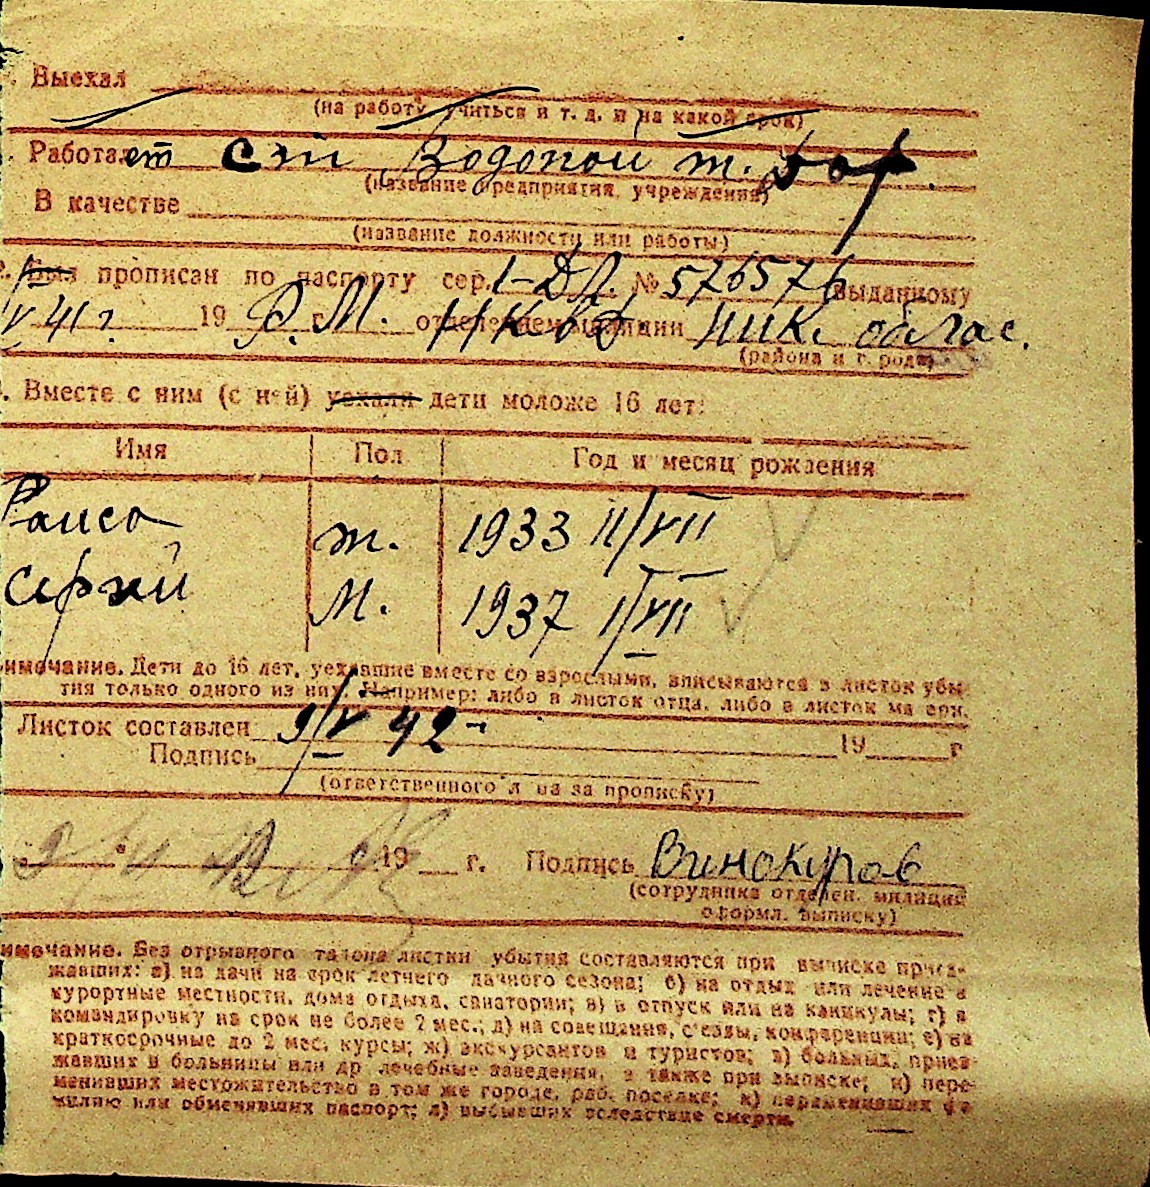 Выехал
(на работу, учиться и т. д. и на какой срок)
Работает ст Водопой ж. дор.
(название предприятия, учреждения)
В качестве
(название должности или работы)
Был прописан по паспорту сер. 1-ДЛ. № 576576 выданному
V 41 г. 19 г. Р.М. НКВД отделением милиции Ник. облас.
(района и города)
Вместе с ним (с ней) уехали дети моложе 16 лет:
Имя Пол Год и месяц рождения
Раиса ж. 1933 11/VII
Сергий м. 1937 1/VII
имечание. Дети до 16 лет, уехавшие вместе со взрослыми, вписываются в листок убы-
тия только одного из них. Например: либо в листок отца, либо в листок матери.
Листок составлен 9/V 42 19 г
Подпись
(ответственного лица за прописку)
19 г. Подпись Винокуров
(сотрудника отделен. милиции
оформл. выписку)
имечание. Без отрывного талона листки убытия составляются при выписке приез-
жавших: а) на дачи на срок летнего дачного сезона; б) на отдых или лечение в
курортные местности, дома отдыха, санатории; в) в отпуск или на каникулы; г) в
командировку на срок не более 2 мес.; д) на совещания, съезды, конференции; е) на
краткосрочные до 2 мес. курсы; ж) экскурсантов и туристов; з) больных, приез-
жавших в больницы или др лечебные заведения, а также при выписке; и) пере-
менивших местожительство в том же городе, раб. поселке; к) переменивших фа-
милию или обменявших паспорт; л) выбывших вследствие смерти.